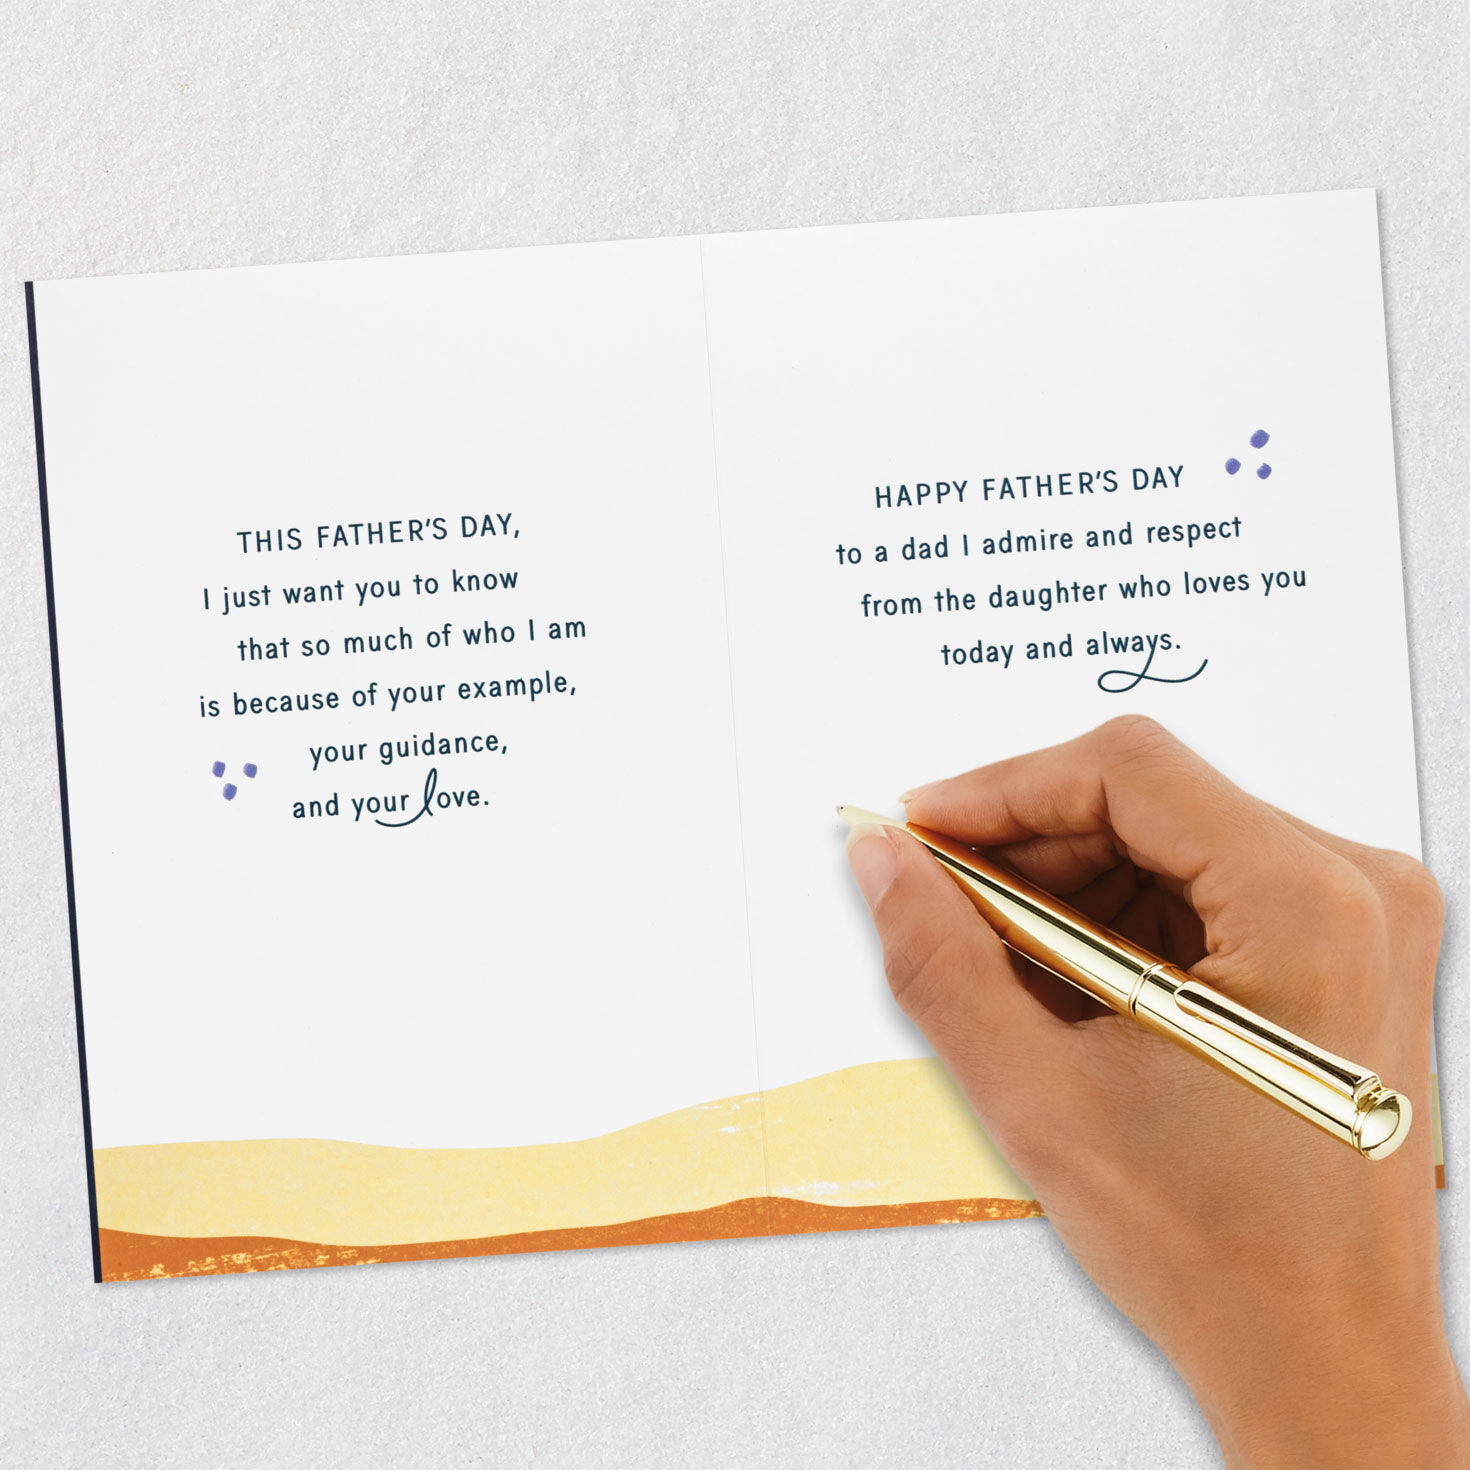 THIS FATHER'S DAY,
I just want you to know
that so much of who I am
is because of your example,
your guidance,
and your love.
HAPPY FATHER'S DAY
to a dad I admire and respect
from the daughter who loves you
today and always.